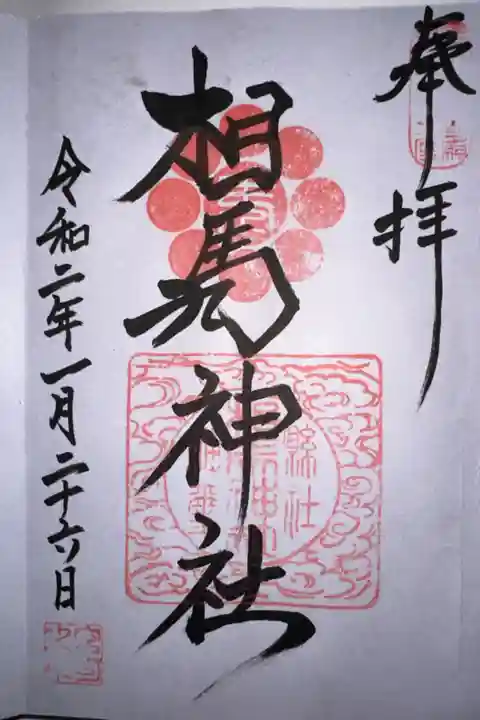 奉拝
相馬神社
縣社
令和二年一月二十六日